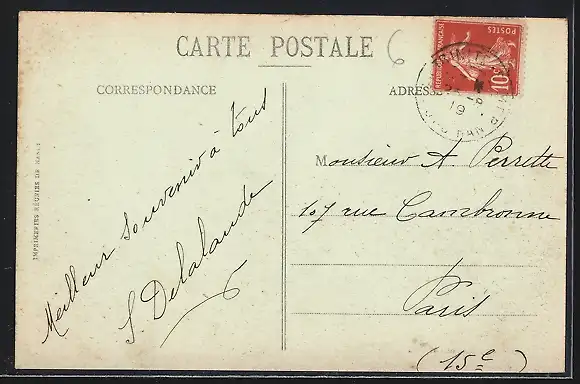 CARTE POSTALE
6
CORRESPONDANCE
Meilleur souvenir à tous
S. Delalande
IMPRIMERIES RÉUNIES DE NANCY
ADRESSE
RÉPUBLIQUE FRANÇAISE
POSTES
10
19
Monsieur A. Perrette
107 rue Cambronne
Paris
(15e)